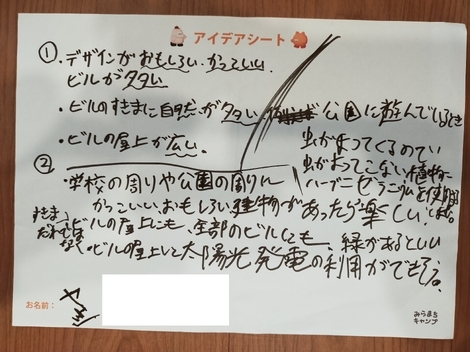 アイデアシート
① ・デザインがおもしろい、かっこいい
ビルが多い
・ビルのすきまに自然が多い
公園に遊んでいるとき
虫がよってくるので
虫がよってこない植物に
ハーブ
・ビルの屋上が広い
② ・学校の周りや公園の周りに
かっこいい、おもしろい建物があったら楽しい
すきまだけではなく
ビルの屋上にも、全部のビルにも、緑があるといい
・ビルの屋上で太陽光発電の利用ができそう。
お名前：
みらまちキャンプ